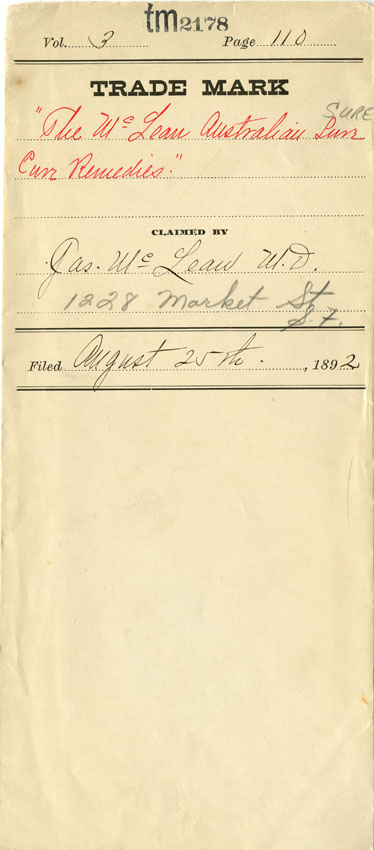 tm2178
Vol. 3 Page 110
TRADE MARK
SURE
"The Mc Lean Australian Surr
Curr Remedies."
CLAIMED BY
Jas. Mc Lean M.D.
1228 Market St
S.F.
Filed August 25th. , 1892